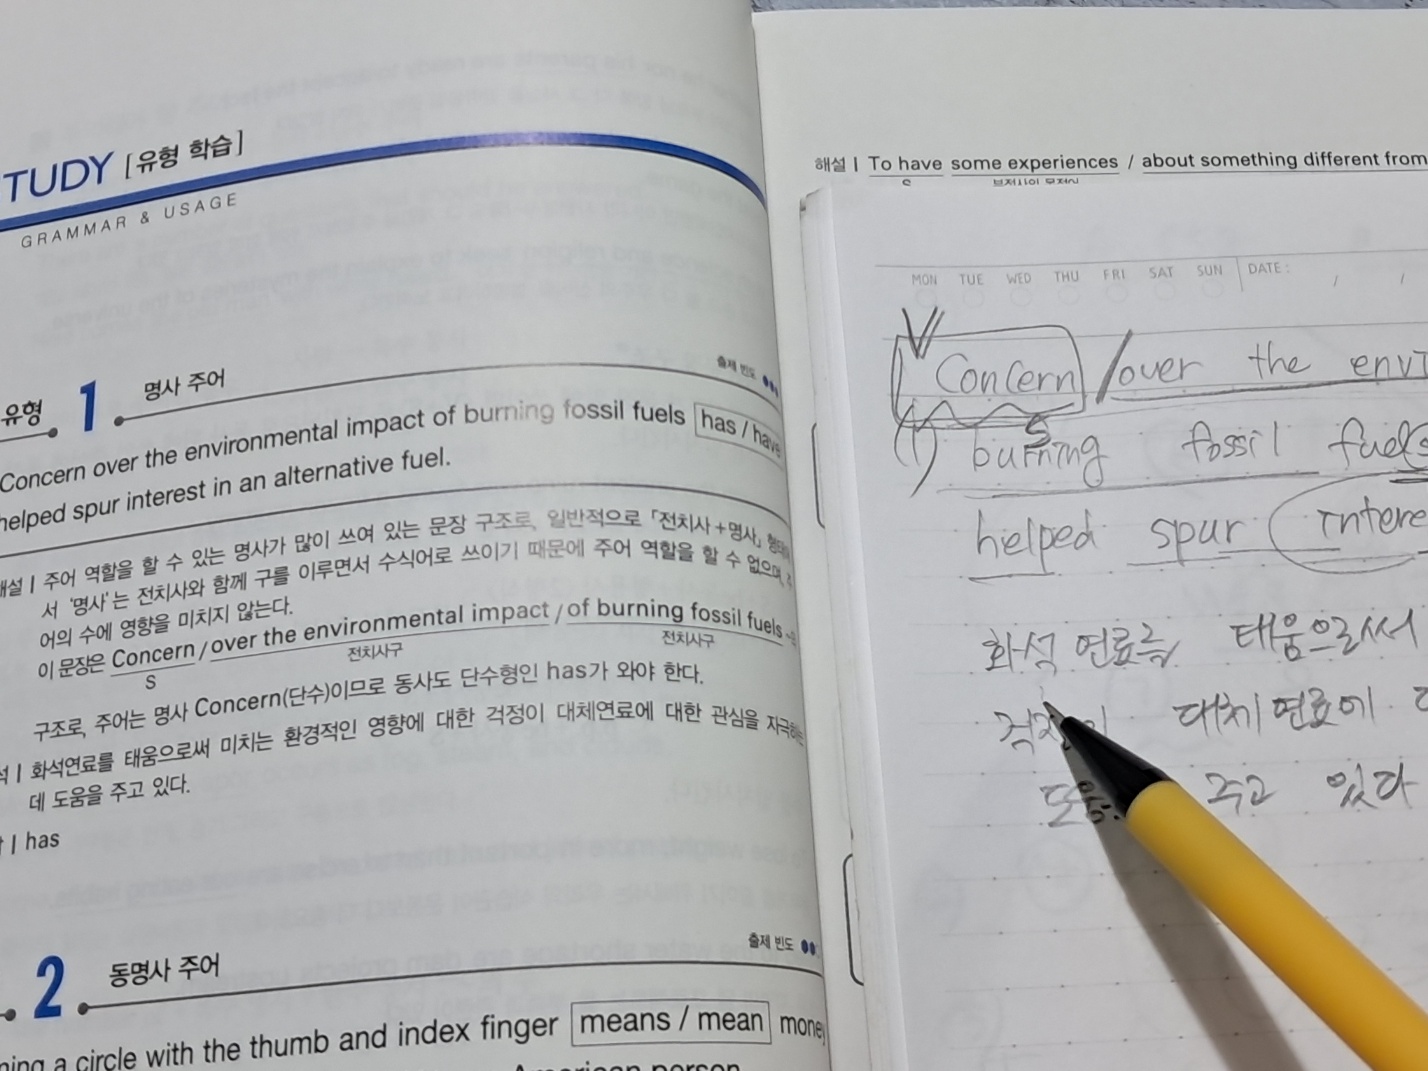 TUDY [유형 학습]
GRAMMAR & USAGE
출제 빈도
유형 1 명사 주어
Concern over the environmental impact of burning fossil fuels has / have
helped spur interest in an alternative fuel.
해설 | 주어 역할을 할 수 있는 명사가 많이 쓰여 있는 문장 구조로, 일반적으로 「전치사+명사」 형태
서 '명사'는 전치사와 함께 구를 이루면서 수식어로 쓰이기 때문에 주어 역할을 할 수 없으며,
어의 수에 영향을 미치지 않는다.
이 문장은 Concern / over the environmental impact / of burning fossil fuels
S 전치사구 전치사구
구조로, 주어는 명사 Concern(단수)이므로 동사도 단수형인 has가 와야 한다.
석 | 화석연료를 태움으로써 미치는 환경적인 영향에 대한 걱정이 대체연료에 대한 관심을 자극하는
데 도움을 주고 있다.
| has
출제 빈도
2 동명사 주어
ning a circle with the thumb and index finger means / mean money
American person
해설 | To have some experiences / about something different from
S
MON TUE WED THU FRI SAT SUN DATE: / /
Concern / over the envi
(1) burning fossil fuels
S
helped spur intere
화석 연료를 태움으로써
대체 연료에
도움 주고 있다